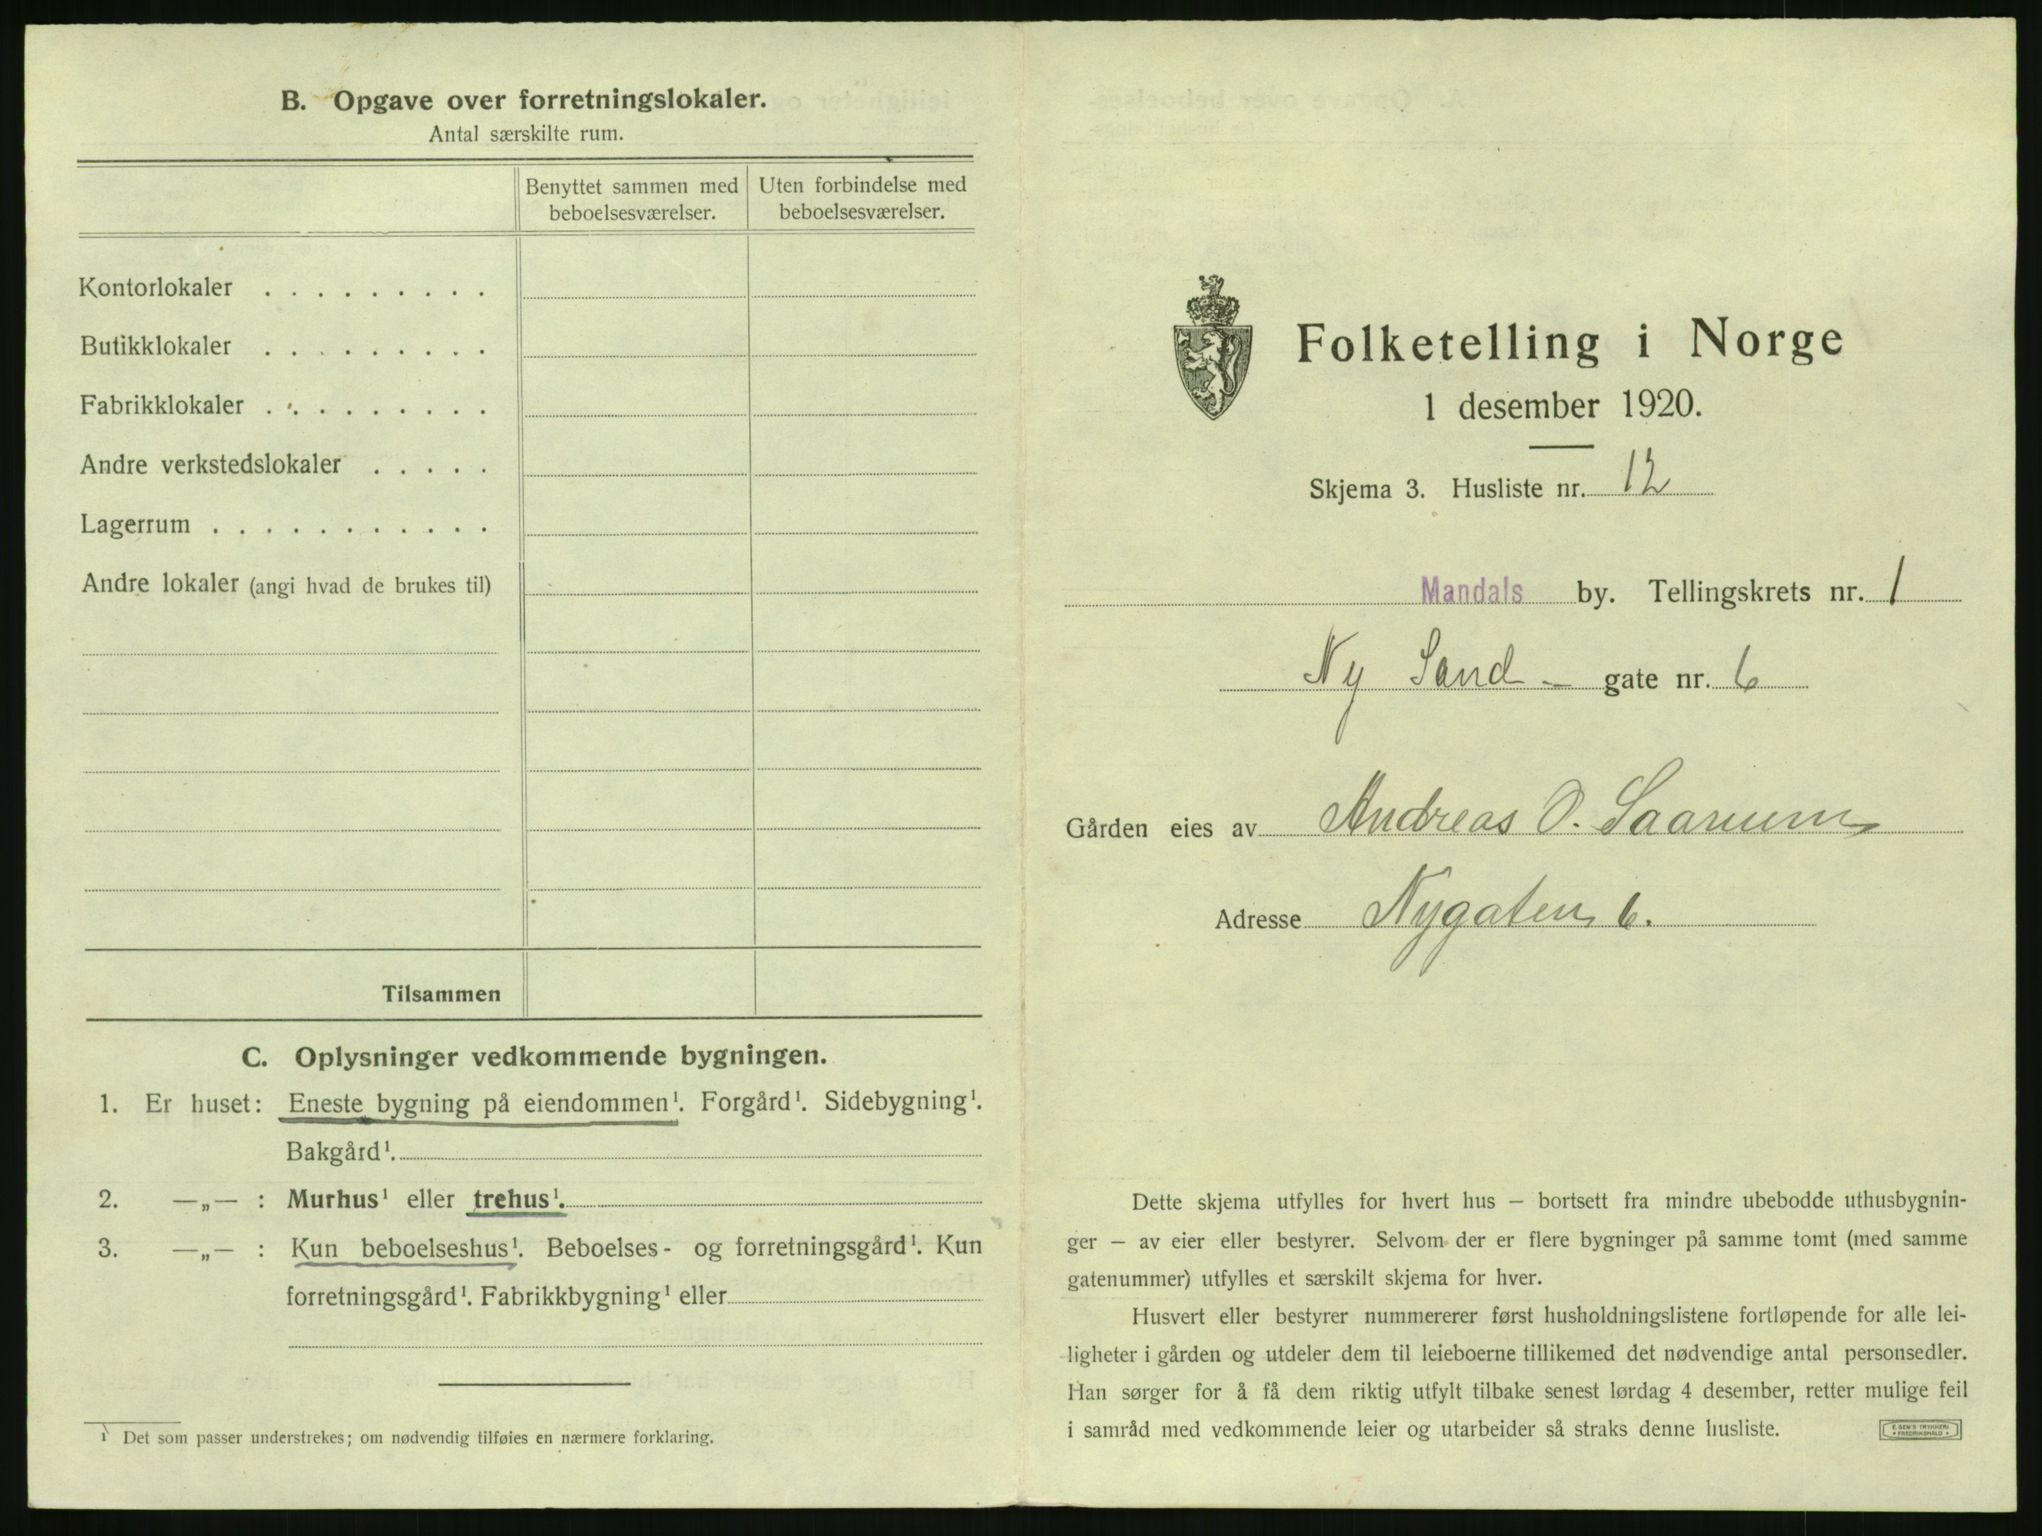 B. Opgave over forretningslokaler.
Antal særskilte rum.
Benyttet sammen med beboelsesværelser.
Uten forbindelse med beboelsesværelser.
Kontorlokaler . . . . . . . . .
Butikklokaler . . . . . . . . .
Fabrikklokaler . . . . . . . . .
Andre verkstedslokaler . . . . .
Lagerrum . . . . . . . . . . .
Andre lokaler (angi hvad de brukes til)
Tilsammen
C. Oplysninger vedkommende bygningen.
1. Er huset: Eneste bygning på eiendommen¹. Forgård¹. Sidebygning¹.
Bakgård¹.
2. —„— : Murhus¹ eller trehus¹.
3. —„— : Kun beboelseshus¹. Beboelses- og forretningsgård¹. Kun
forretningsgård¹. Fabrikkbygning¹ eller
¹ Det som passer understrekes; om nødvendig tilføies en nærmere forklaring.
Folketelling i Norge
1 desember 1920.
Skjema 3. Husliste nr. 12
Mandals by. Tellingskrets nr. 1
Ny Sand – gate nr. 6
Gården eies av Andreas O. Saanum
Adresse Nygaten 6.
Dette skjema utfylles for hvert hus – bortsett fra mindre ubebodde uthusbygnin-
ger – av eier eller bestyrer. Selvom der er flere bygninger på samme tomt (med samme
gatenummer) utfylles et særskilt skjema for hver.
Husvert eller bestyrer nummererer først husholdningslistene fortløpende for alle lei-
ligheter i gården og utdeler dem til leieboerne tillikemed det nødvendige antal personsedler.
Han sørger for å få dem riktig utfylt tilbake senest lørdag 4 desember, retter mulige feil
i samråd med vedkommende leier og utarbeider så straks denne husliste.
E. SEM'S TRYKKERI
FREDRIKSHALD